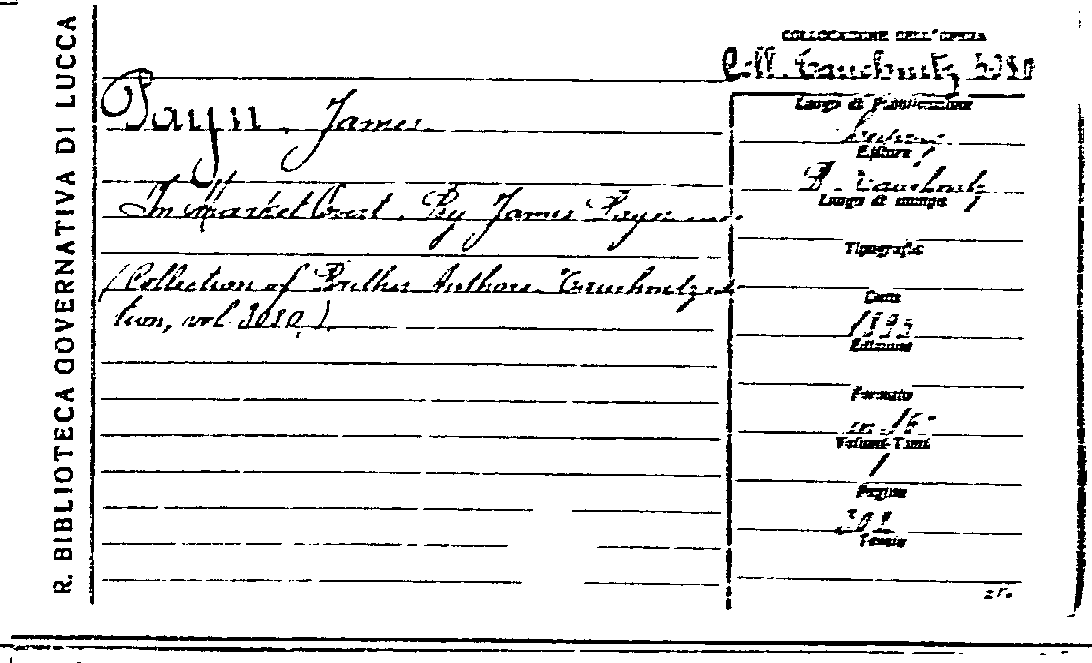 R. BIBLIOTECA GOVERNATIVA DI LUCCA
COLLOCAZIONE DELL'OPERA
Coll. Tauchnitz 3010
Payn. James.
In Market Overt. By James Payn
(Collection of British Authors. Tauchnitz edi-
tion, vol 3010.)
Luogo di Pubblicazione
Editore
B. Tauchnitz
Luogo di stampa
Tipografia
Data
1895
Edizione
Formato
in-16°
Volumi-Tomi
1
Pagine
Tavole